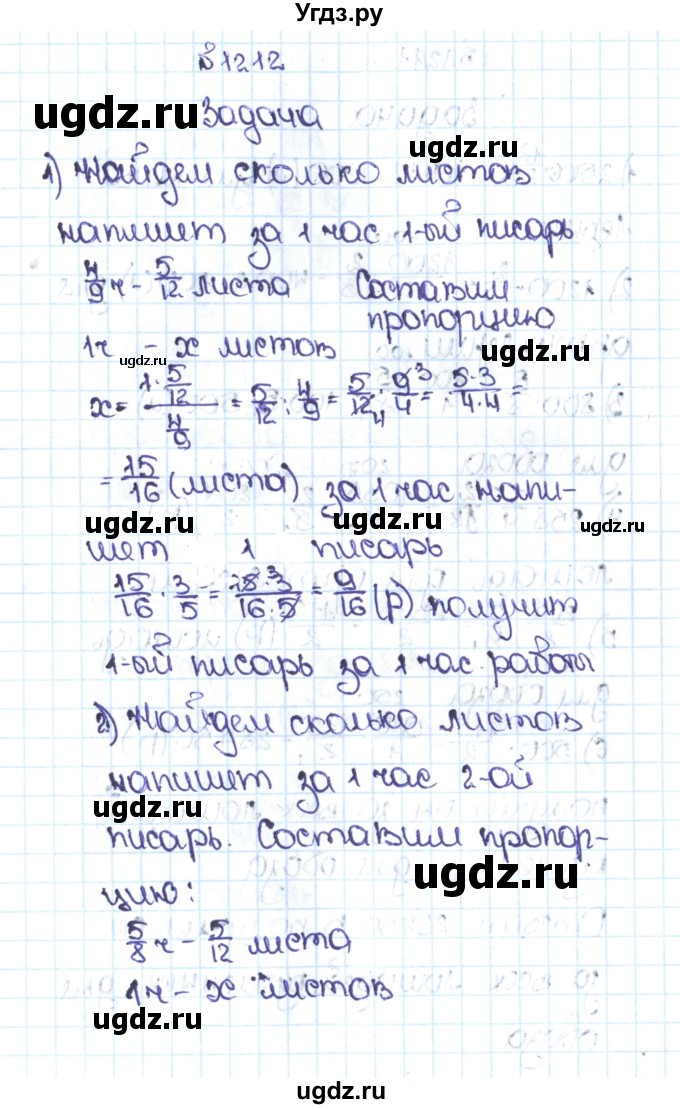 Угдз.ру
№1212
ugdz.ru Задача ugdz.ru
1) Найдем сколько листов
напишет за 1 час 1-ый писарь
4/9 ч - 5/12 листа Составим
пропорцию
1ч - x листов
ugdz.ru ugdz.ru
x = (1·5/12)/(4/9) = 5/12 : 4/9 = 5/12 4 · 9 3/4 = 5·3/4·4 =
= 15/16 (листа) за 1 час напи-
ugdz.ru ugdz.ru ugdz.ru
шет 1 писарь
15/16 · 3/5 = 15 3·3/16·5 = 9/16 (р) получит
1-ый писарь за 1 час работы
2) Найдем сколько листов
напишет за 1 час 2-ой
ugdz.ru
писарь. Составим пропор-
ugdz.ru
цию:
5/8 ч - 5/12 листа
1ч - x листов
ugdz.ru
ugdz.ru